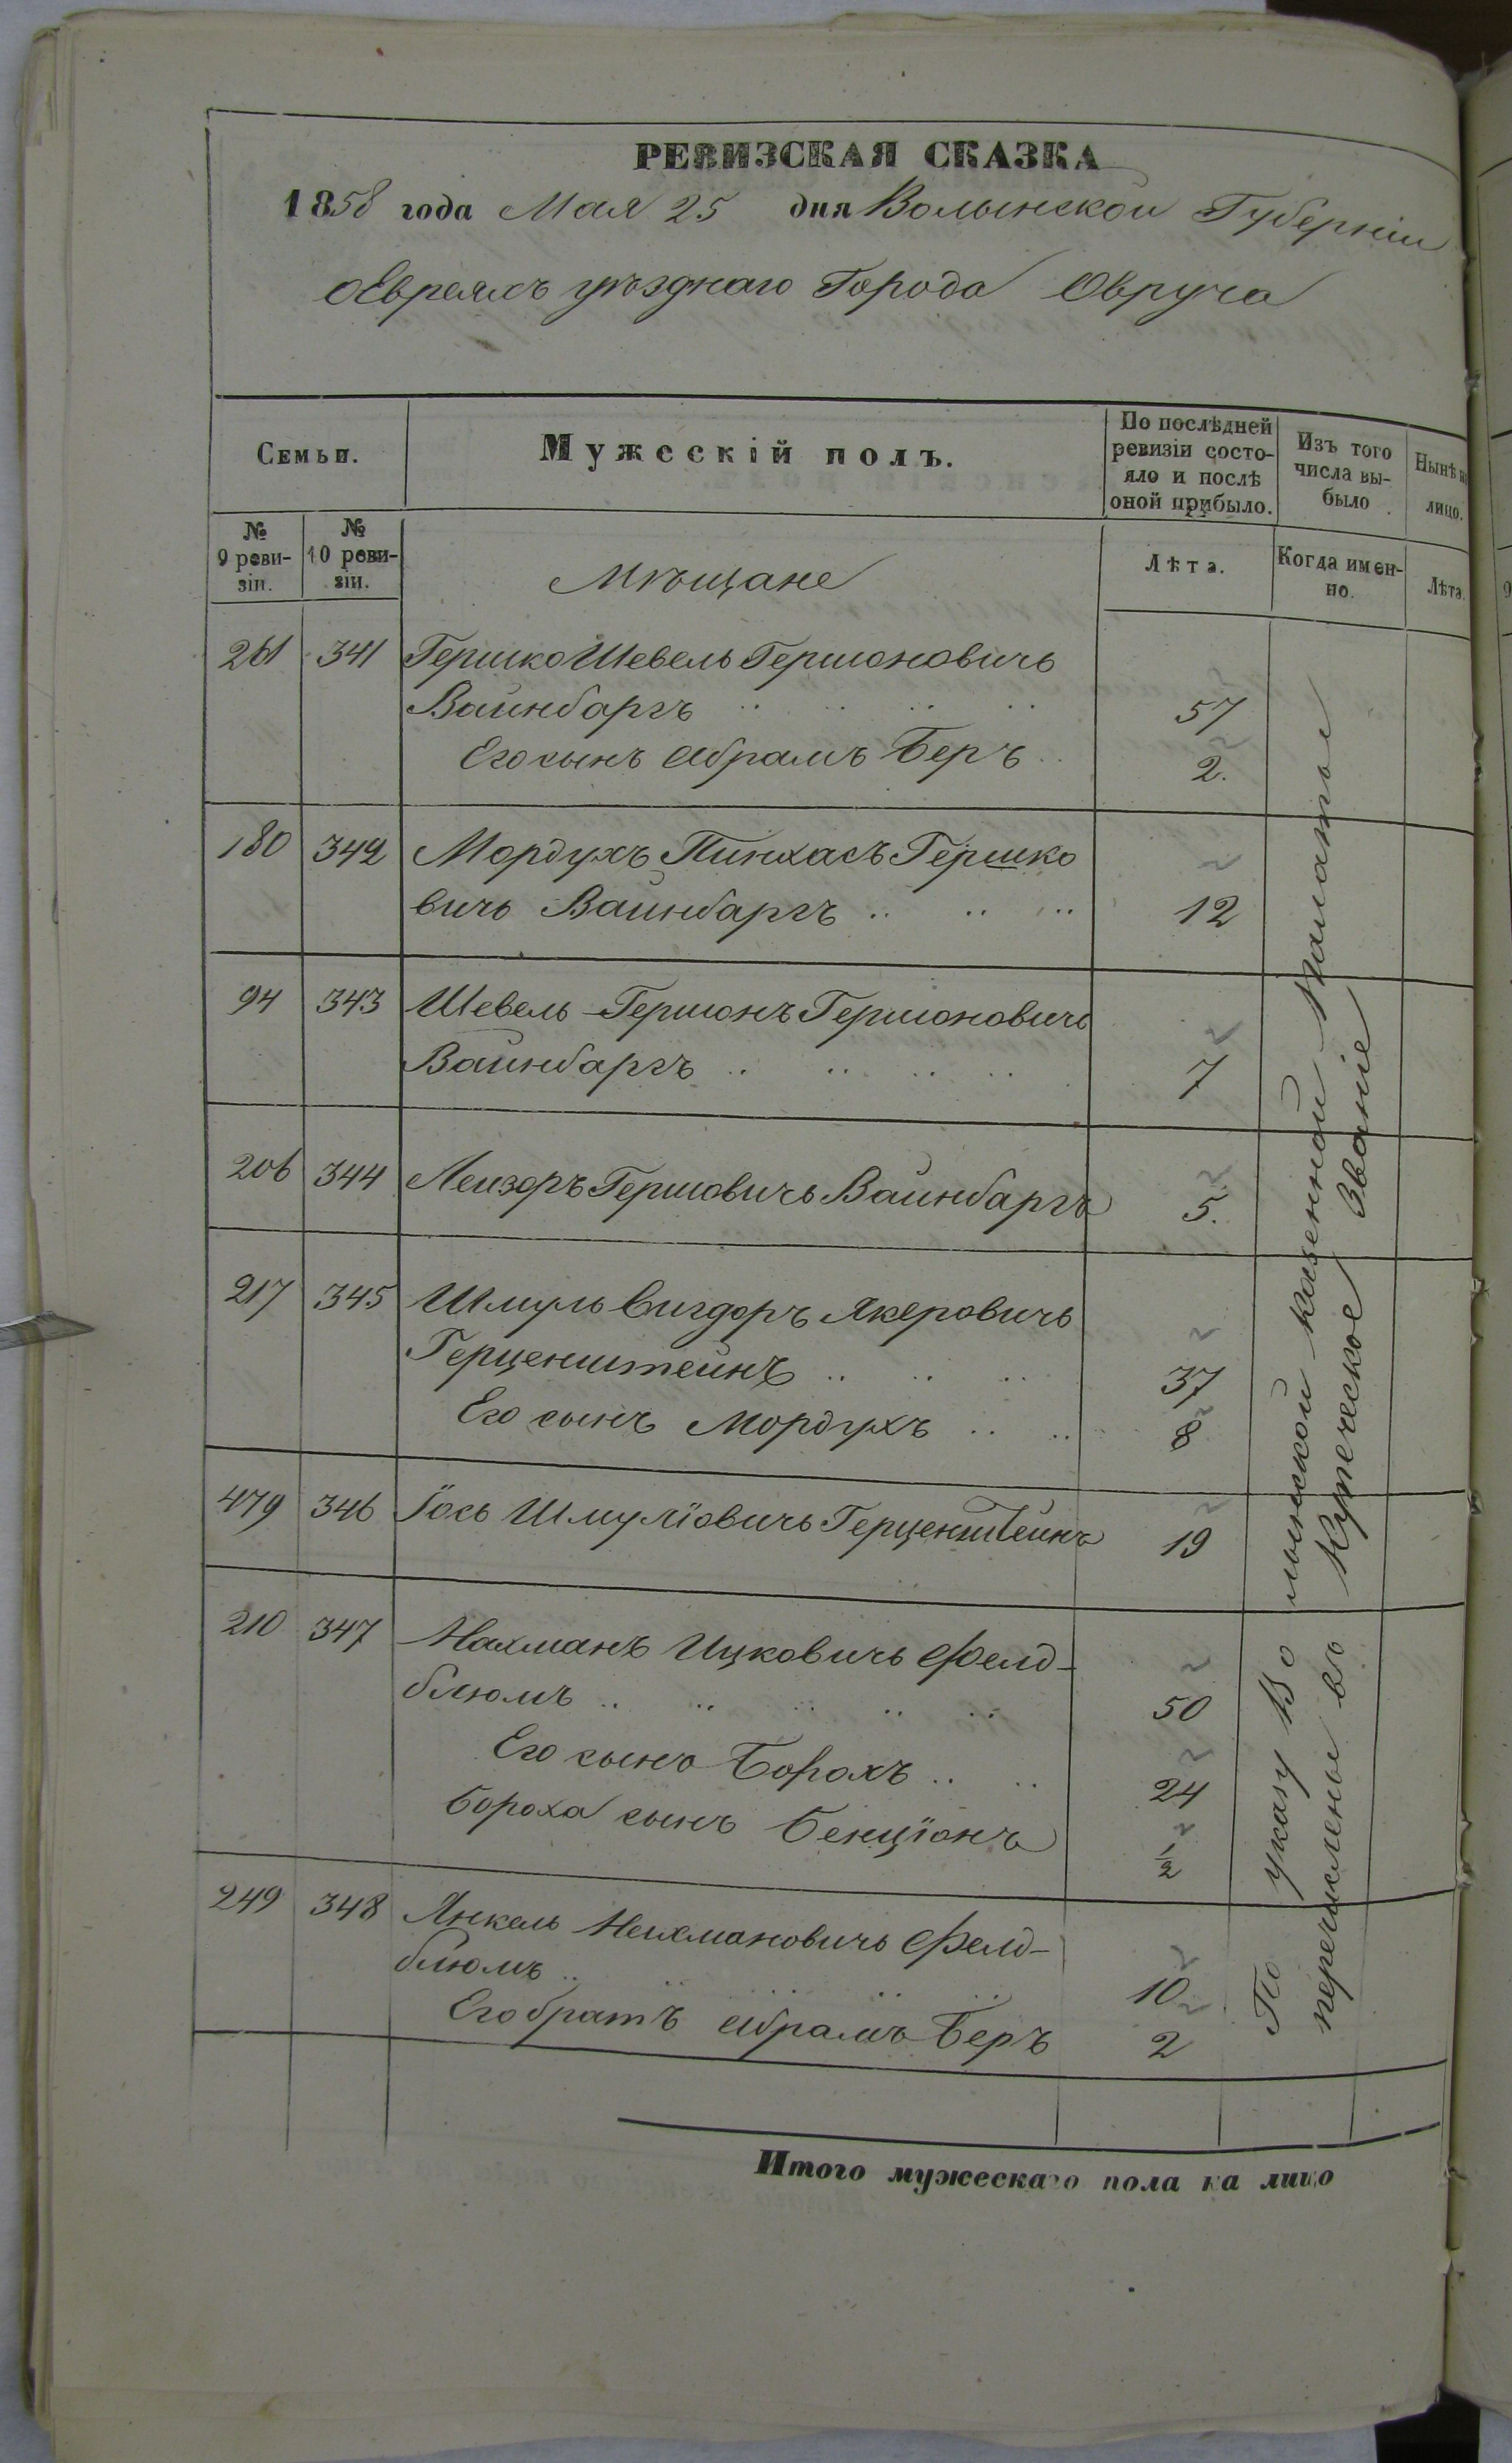 РЕВИЗСКАЯ СКАЗКА
1858 года Мая 25 дня Волынской Губерніи
о Евреяхъ уѣзднаго Города Овруча
Семьи.
Мужескій полъ.
По послѣдней
ревизіи состо-
яло и послѣ
оной прибыло.
Изъ того
числа вы-
было
Нынѣ на
лицо.
№
9 реви-
зіи.
№
10 реви-
зіи.
Мѣщане
Лѣта.
Когда имен-
но.
Лѣта.
261 341 Гершко Шевель Гершоновичъ
Вайнбаргъ 57
Его сынъ Абрамъ Беръ 2.
180 342 Мордухъ Пинхасъ Гершко
вичъ Вайнбаргъ 12
94 343 Шевель-Гершонъ Гершоновичъ
Вайнбаргъ 7
206 344 Лейзоръ Гершовичъ Вайнбаргъ 5.
217 345 Шмуль Вигдоръ Якеровичъ
Герценштейнъ 37
Его сынъ Мордухъ 8
479 346 Іось Шмуліовичъ Герценштейнъ 19
210 347 Нахманъ Ицковичъ Фелд-
блюмъ 50
Его сынъ Борохъ 24
Бороха сынъ Бенціонъ 1/2
249 348 Янкель Нехмановичъ Фелд-
блюмъ 10
Его братъ Абрамъ Беръ 2
По указу Волынской Казенной Палаты
перечислены въ Купеческое Званіе
Итого мужескаго пола на лицо